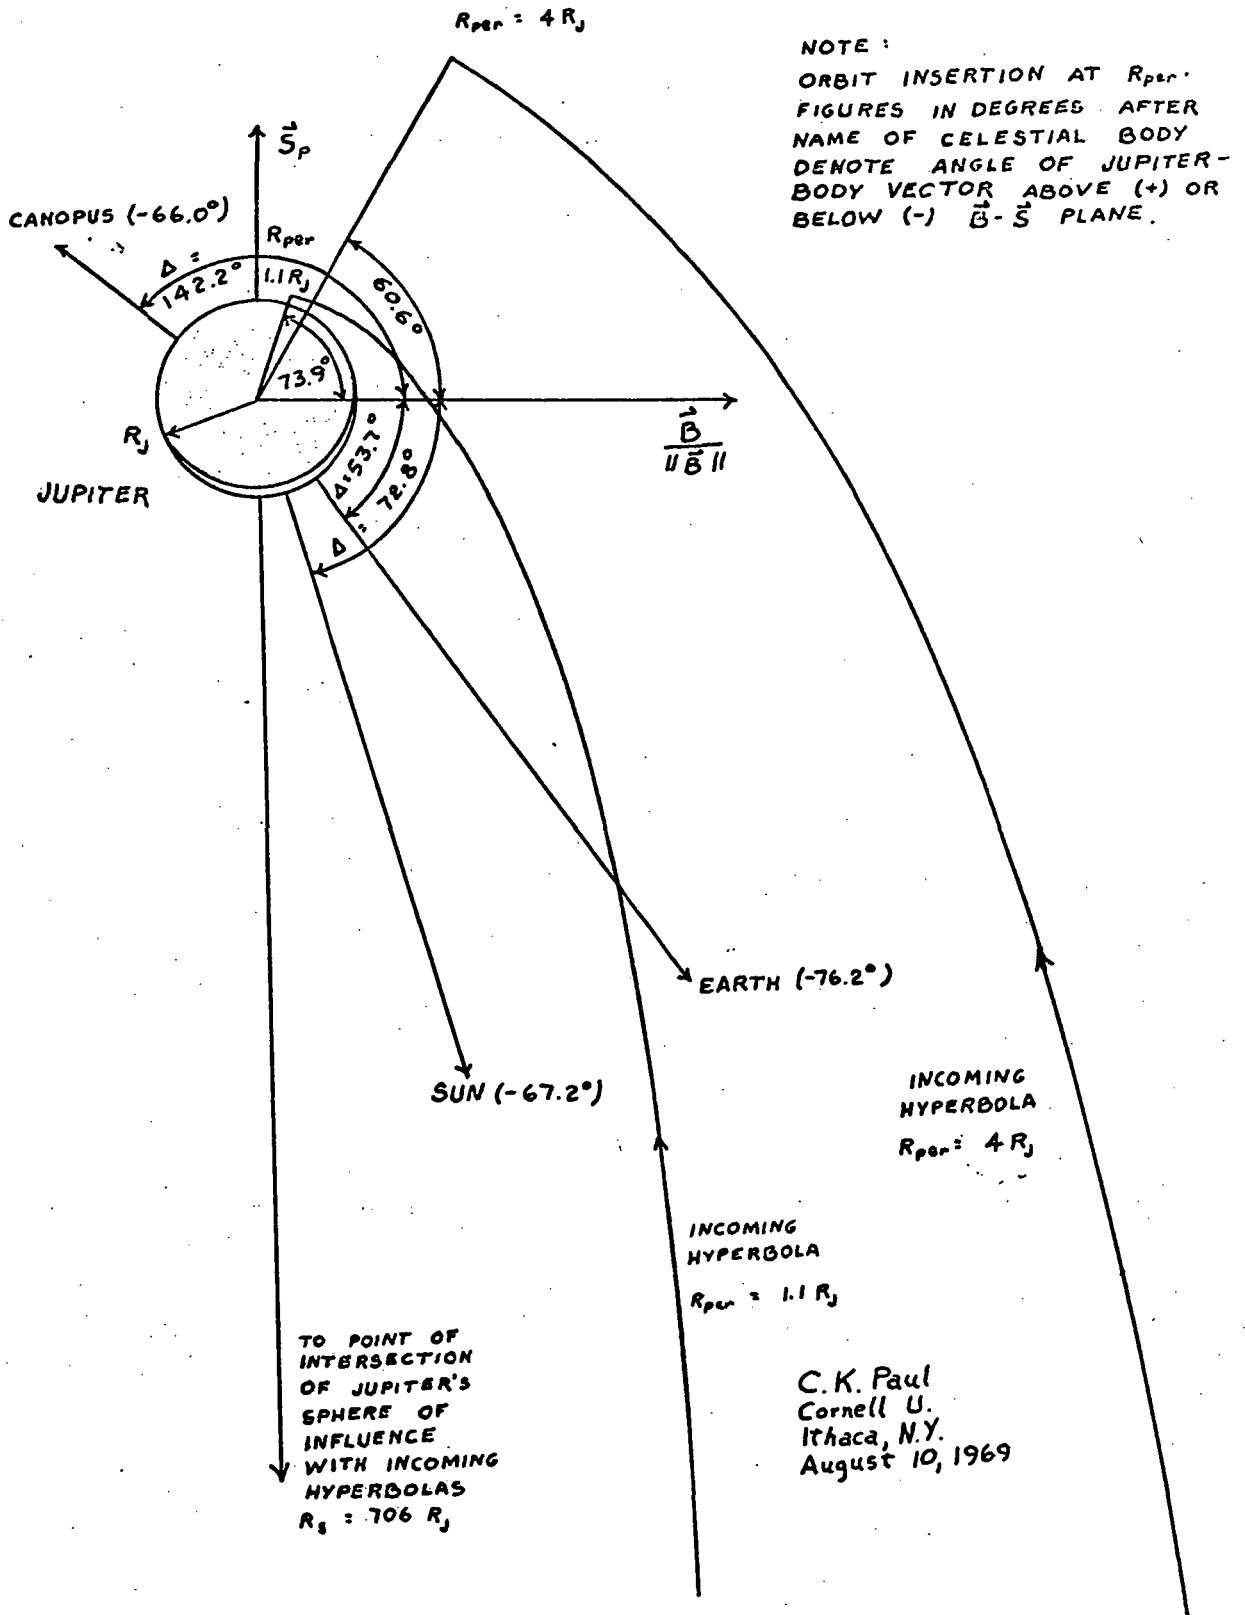 R_per = 4 R_J
NOTE :
ORBIT INSERTION AT R_per.
FIGURES IN DEGREES AFTER
NAME OF CELESTIAL BODY
DENOTE ANGLE OF JUPITER-
BODY VECTOR ABOVE (+) OR
BELOW (-) B⃗-S⃗ PLANE.
S⃗_P
CANOPUS (-66.0°)
Δ =
142.2°
R_per
1.1 R_J
60.6°
73.9°
B⃗
‖B⃗‖
R_J
JUPITER
Δ=53.7°
Δ = 72.8°
EARTH (-76.2°)
SUN (-67.2°)
INCOMING
HYPERBOLA
R_per = 4 R_J
INCOMING
HYPERBOLA
R_per = 1.1 R_J
TO POINT OF
INTERSECTION
OF JUPITER'S
SPHERE OF
INFLUENCE
WITH INCOMING
HYPERBOLAS
R_s = 706 R_J
C.K. Paul
Cornell U.
Ithaca, N.Y.
August 10, 1969